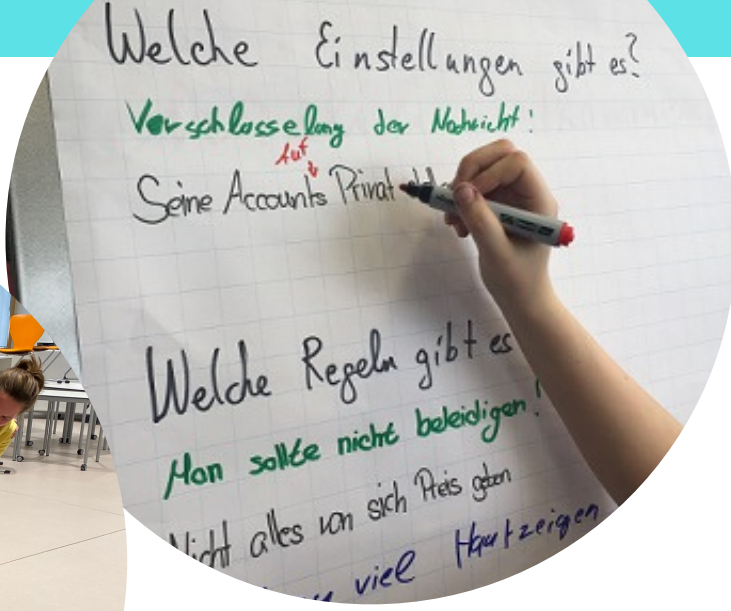 Welche Einstellungen gibt es?
Verschlosselong der Nachricht:
Auf
Seine Accounts Privat
Welche Regeln gibt es
Man sollte nicht beleidigen!
Nicht alles von sich Preis geben
viel Haut zeigen